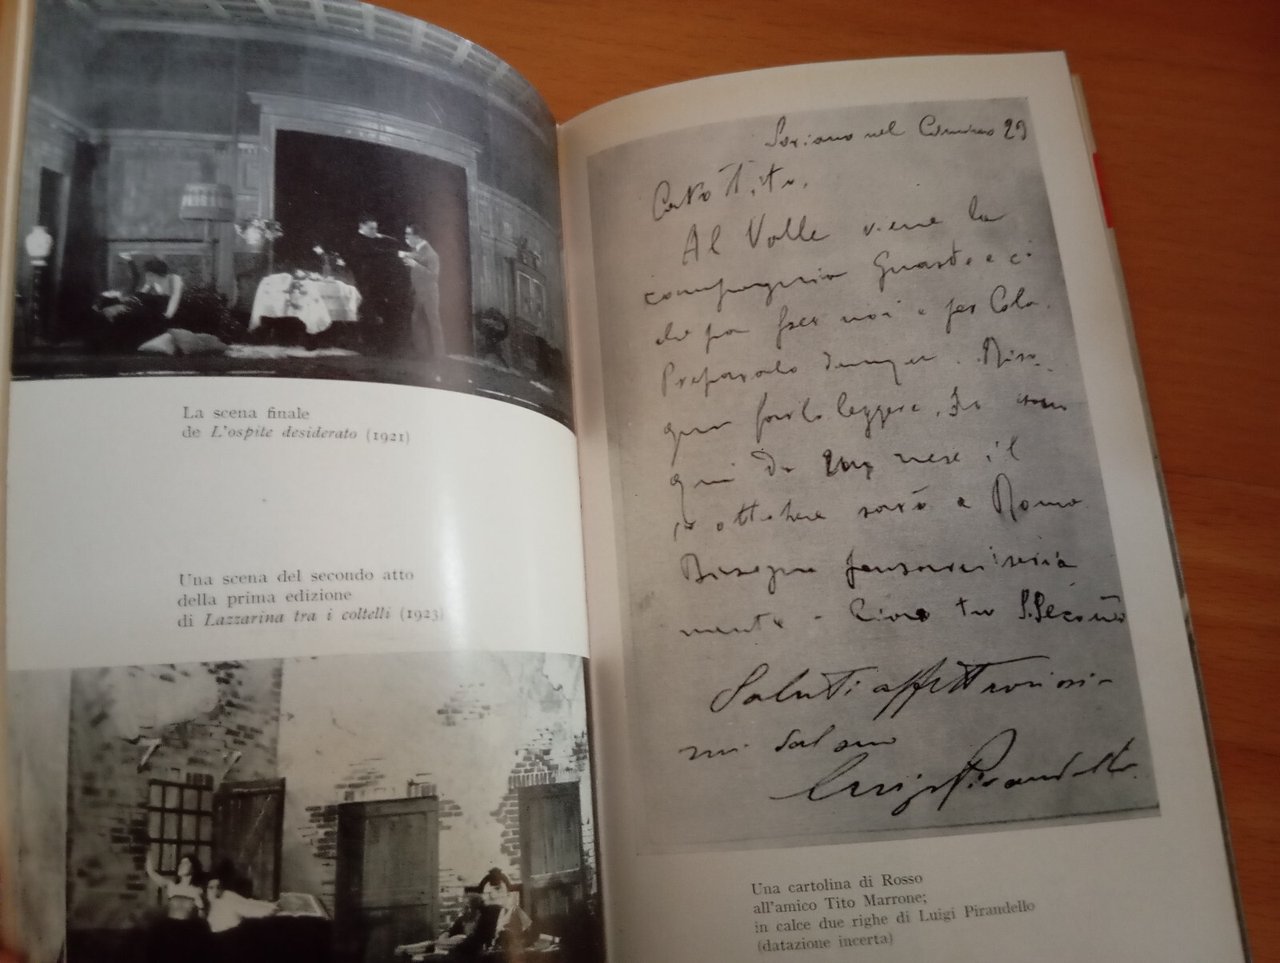 La scena finale
de L'ospite desiderato (1921)
Una scena del secondo atto
della prima edizione
di Lazzarina tra i coltelli (1923)
Soriano nel Cimino 29
Caro Tito,
Al Valle viene la
compagnia
per noi e per
Preparalo
farlo leggere,
qui un mese il
ottobre sarò a Roma
Bisogna
mente - Ciao tu S.Secondo
Saluti affettuosissi-
mi dal suo
Luigi Pirandello
Una cartolina di Rosso
all'amico Tito Marrone;
in calce due righe di Luigi Pirandello
(datazione incerta)